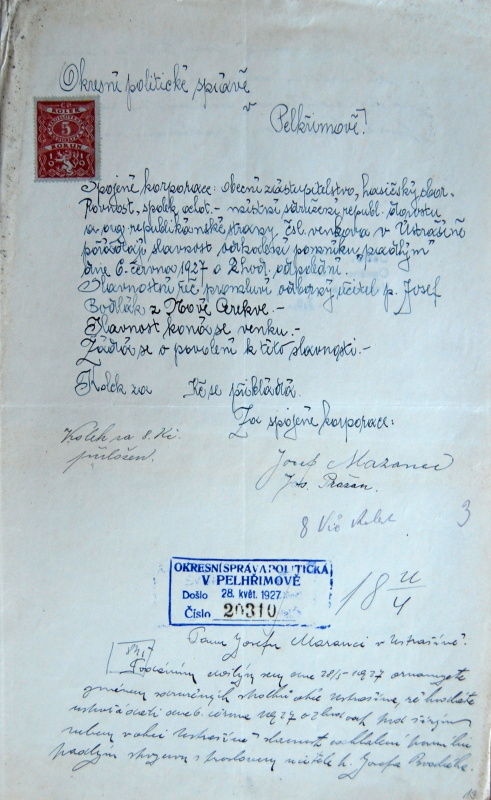 Okresní politické správě
v
Pelhřimově!
KOLEK
5
KORUN
Spojené korporace: obecní zastupitelstvo, hasičský sbor.
Rovnost, spolek místní sdružení republ. dorostu
a org. republikánské strany čsl. venkova v Ustrašíně
pořádají slavnost odhalení pomníku "padlým"
dne 6. června 1927 o 2 hod. odpolední.
Slavnostní řeč promluví odborný učitel p. Josef
Bodlák z Nové Cerekve.-
Slavnost koná se venku.-
Žádá se o povolení k této slavnosti.-
Kolek za Kč se přikládá.
Za spojené korporace:
Kolek za 8 Kč.
přiložen.
Josef Mazanec
Jos. Pražan.
8 Kč kolek
3
OKRESNÍ SPRÁVA POLITICKÁ
V PELHŘIMOVĚ
Došlo 28. květ. 1927
Číslo 20310
18
4
Panu Josefu Mazanci v Ustrašíně.
Podáním došlým sem dne 28/5 1927 oznamujete
jménem korporací obce Ustrašína, že hodláte
uspořádati dne 6. června 1927 o 2 hod. odp. pod širým
nebem v obci Ustrašíně slavnost odhalení pomníku
padlým spojenou s proslovem učitele p. Josefa Bodláka.
13